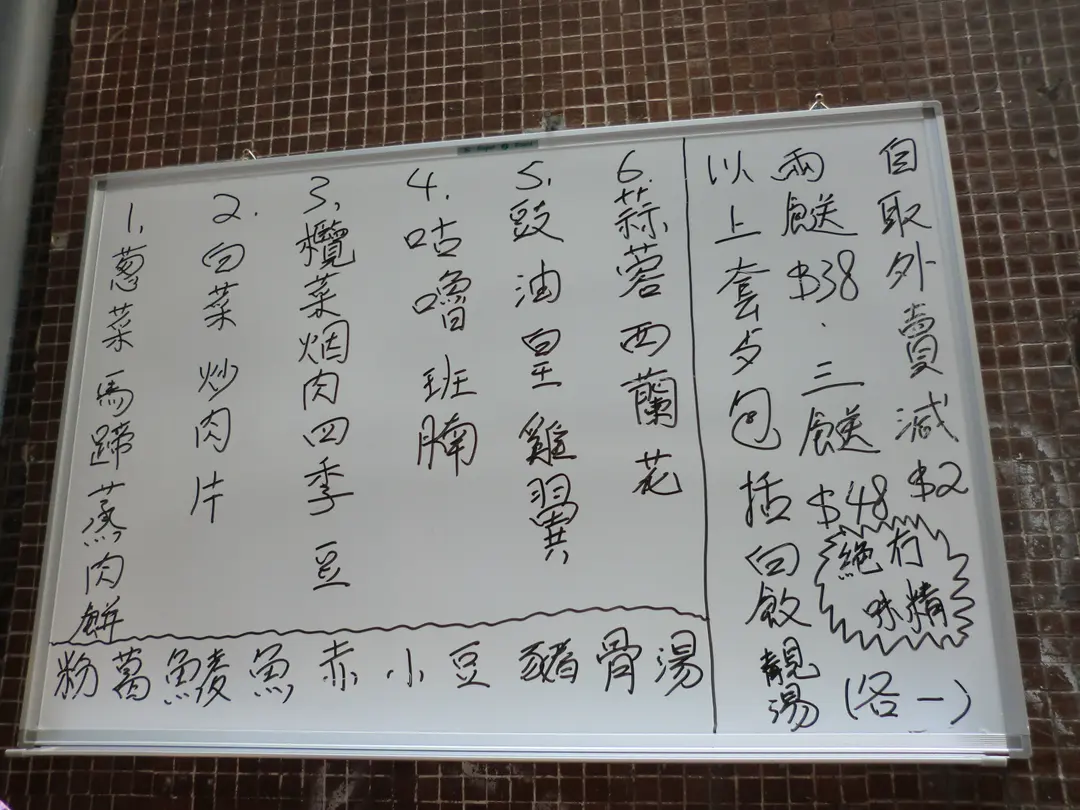 1. 葱菜馬蹄蒸肉餅
2. 白菜炒肉片
3. 欖菜烟肉四季豆
4. 咕嚕班腩
5. 豉油皇雞翼
6. 蒜蓉西蘭花
粉葛鯪魚赤小豆豬骨湯
自取外賣減$2
兩餸$38．三餸$48
以上套歺包括白飯靚湯(各一)
絕冇味精